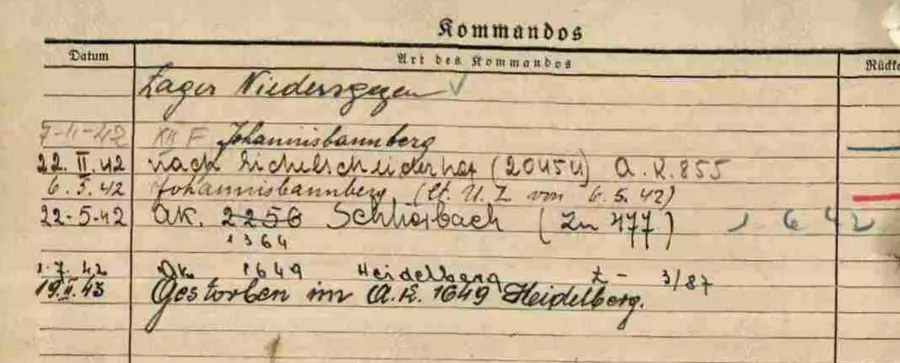 Kommandos
Datum Art des Kommandos Rückke
Lager Niedersgegen
7-II-42 KH F Johannisbannberg
22. II. 42 nach Eichelscheiderhof (20454) A.K. 855
6.5.42 Johannisbannberg (lt. U.Z. von 6.5.42)
22-5-42 AK. 2256 Schhorbach (Zu 477) 1 6 42
1364
1.7.42 AK 1649 Heidelberg 3/87
19.II.43 Gestorben im A.K. 1649 Heidelberg.